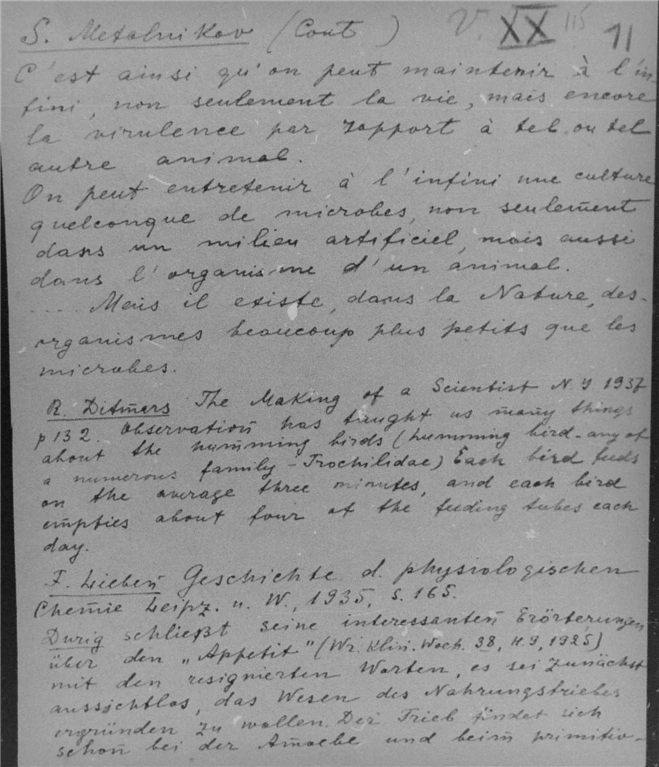 S. Metalnikov (Cont ) V. XX 115 11
C'est ainsi qu'on peut maintenir à l'in
fini, non seulement la vie, mais encore
la virulence par rapport à tel ou tel
autre animal.
On peut entretenir à l'infini une culture
quelconque de microbes, non seulement
dans un milieu artificiel, mais aussi
dans l'organisme d'un animal.
.... Mais il existe, dans la Nature, des-
organismes beaucoup plus petits que les
microbes.
R. Ditmars The Making of a Scientist N.Y 1937
p 132. Observation has taught us many things
about the humming birds (humming bird - any of
a numerous family - Trochilidae) Each bird feeds
on the average three minutes, and each bird
empties about four of the feeding tubes each
day.
F. Lieben Geschichte d. physiologischen
Chemie Leipz. u. W., 1935, S. 165.
Durig schließt seine interessanten Erörterungen
über den „Appetit" (Wr. Klin. Woch. 38, H. 9, 1925)
mit den resignierten Worten, es sei zunächst
aussichtlos, das Wesen des Nahrungstriebes
ergründen zu wollen. Der Trieb findet sich
schon bei der Amoebe und beim primitiv-